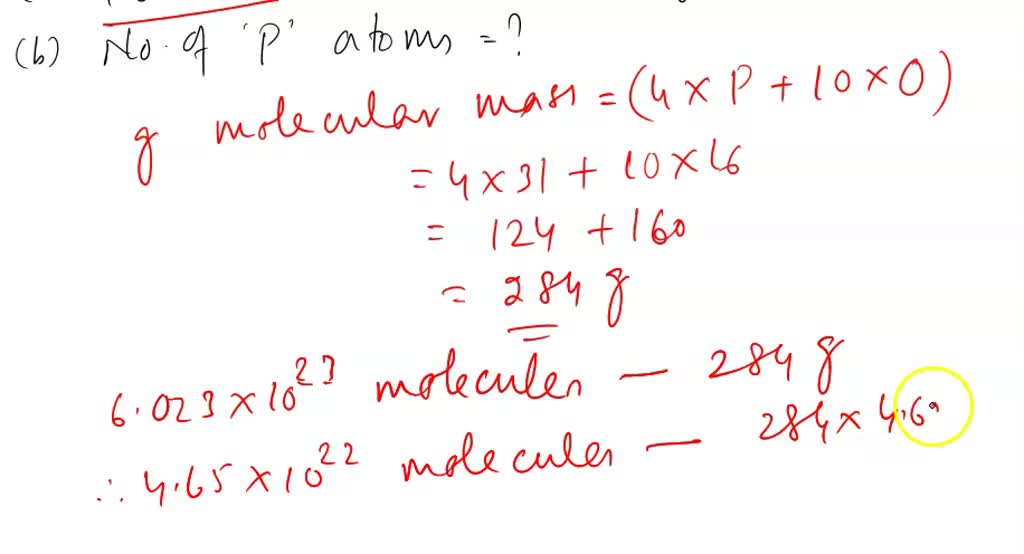 (b) No. of 'P' atoms = ?
g molecular mass = (4 × P + 10 × O)
= 4 × 31 + 10 × 16
= 124 + 160
= 284 g
6.023 × 10²³ molecules — 284 g
∴ 4.65 × 10²² molecules — 284 × 4.6